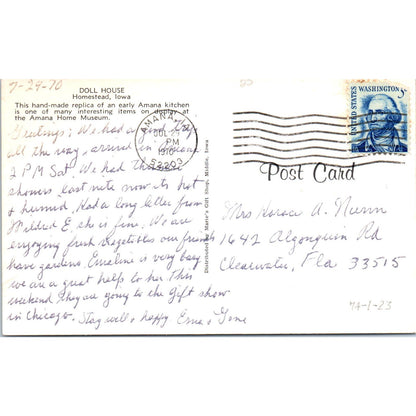 7-24-70
DOLL HOUSE
Homestead, Iowa
This hand-made replica of an early Amana kitchen
is one of many interesting items on display at
the Amana Home Museum.
Greetings; We had a good trip
all the way, arrived in
2 PM Sat. We had thunder
showers last nite now its hot
& humid. Had a long letter from
Mildred E, she is fine. We are
enjoying fresh vegetables our friends
have gardens. Emeline is very busy
we are a great help to her This
weekend they are going to the Gift show
in Chicago. Stay well & happy Erna & Gene
AMANA, IA
PM
1970
52203
UNITED STATES
WASHINGTON
5c
Post Card
Distributed by Maurer's Gift Shop, Middle, Iowa
Mrs Horace A. Nunn
1642 Algonquin Rd
Clearwater, Fla 33515
74-1-23